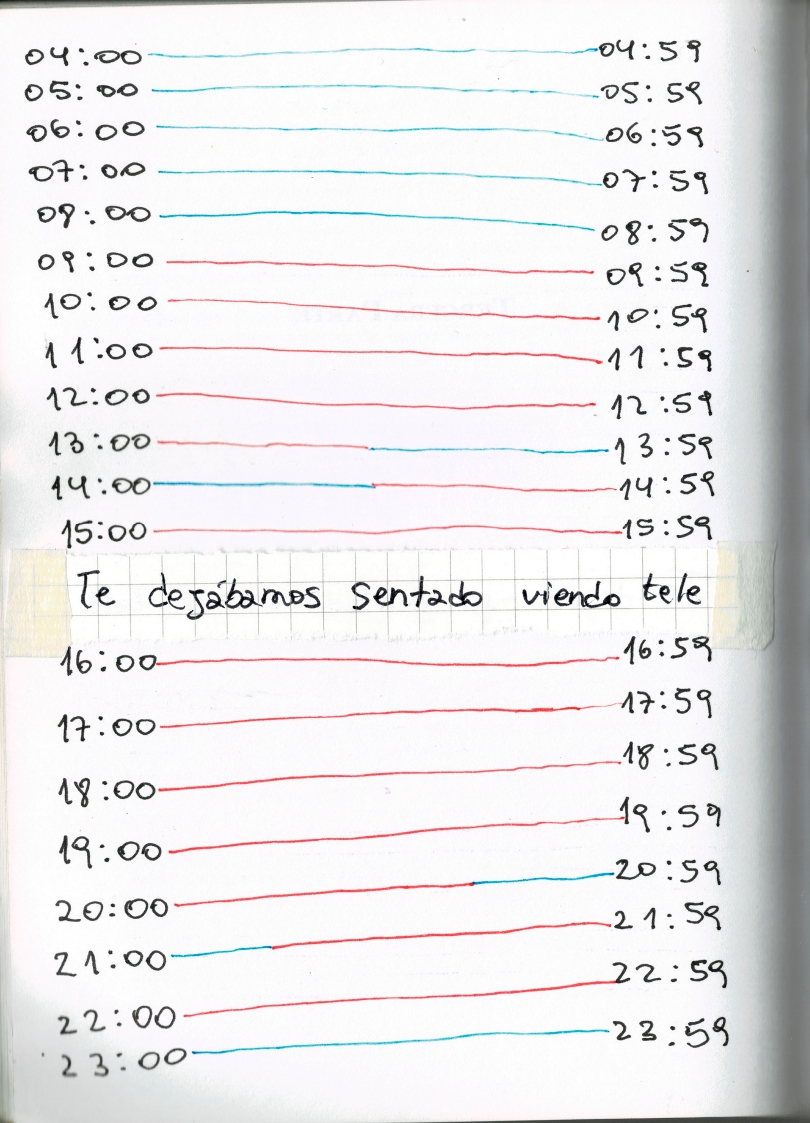 04:00 04:59
05:00 05:59
06:00 06:59
07:00 07:59
08:00 08:59
09:00 09:59
10:00 10:59
11:00 11:59
12:00 12:59
13:00 13:59
14:00 14:59
15:00 15:59
Te dejábamos sentado viendo tele
16:00 16:59
17:00 17:59
18:00 18:59
19:00 19:59
20:00 20:59
21:00 21:59
22:00 22:59
23:00 23:59